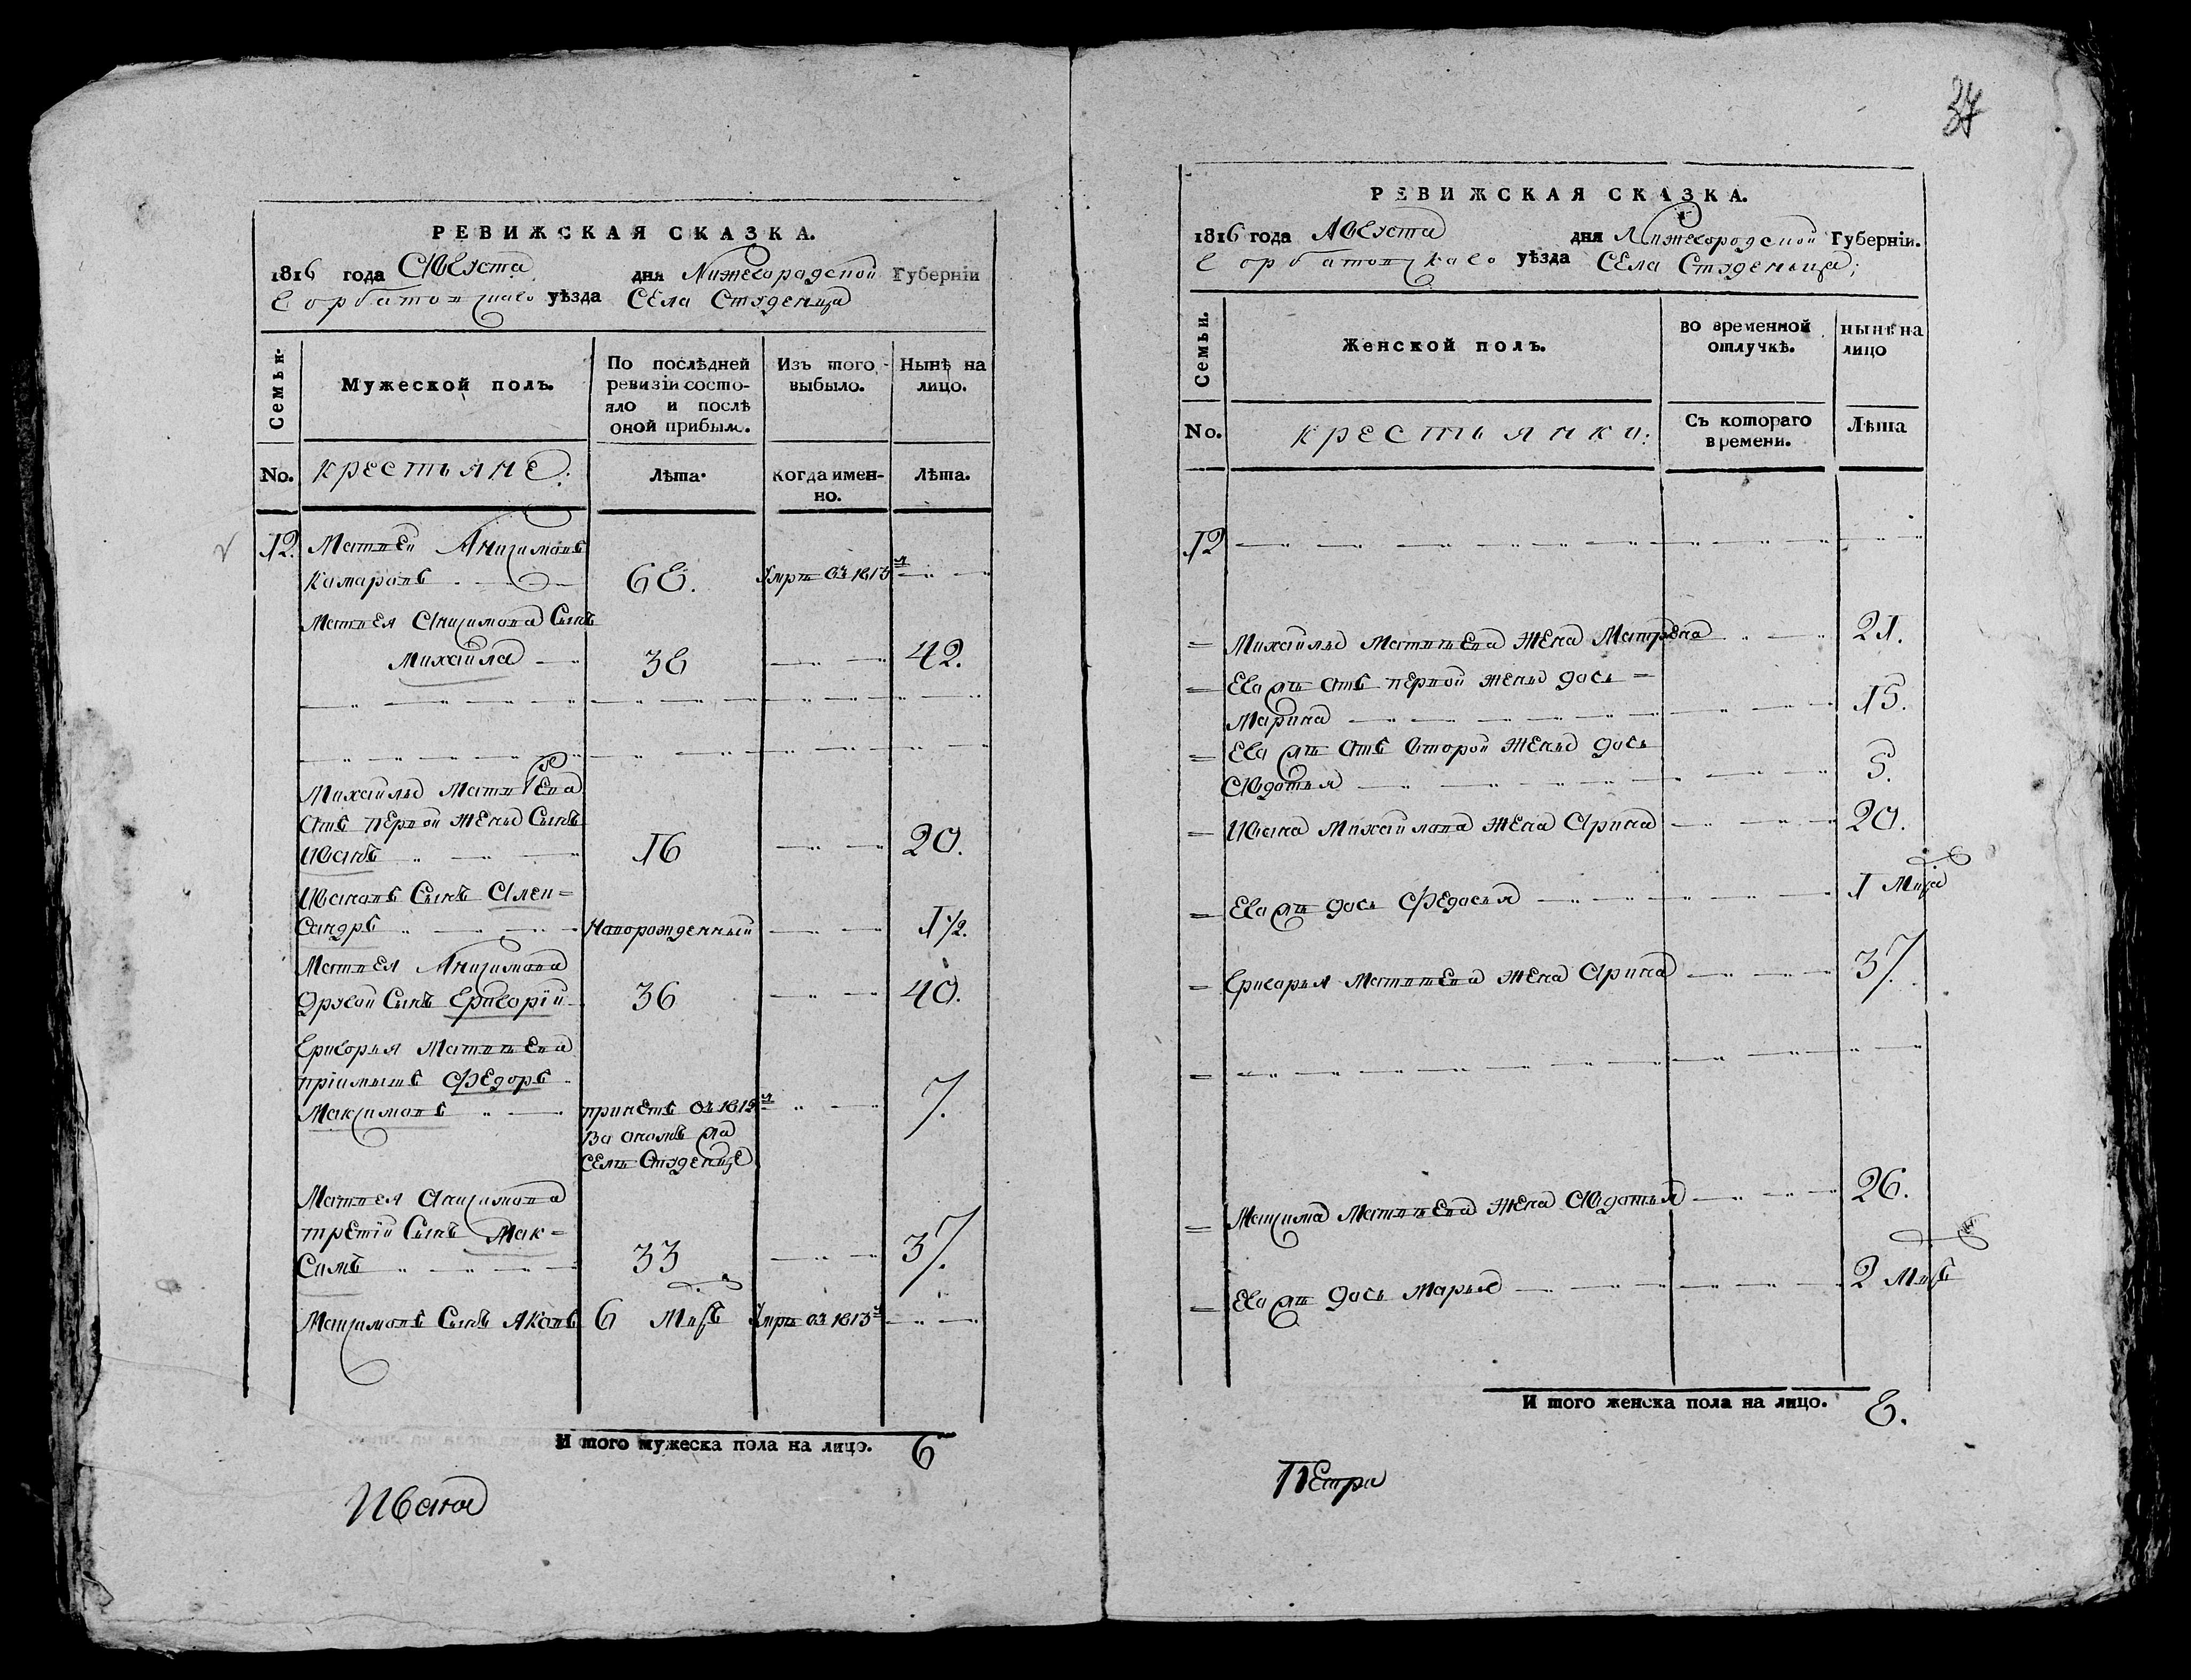 РЕВИЖСКАЯ СКАЗКА.
1816 года Августа дня Нижегородской Губерніи
Горбатовскаго уѣзда Села Студенца
Семьи.
Мужеской полъ.
По послѣдней ревизіи состояло и послѣ оной прибыло.
Изъ того выбыло.
Нынѣ на лицо.
No. крестьяне:
Лѣта.
Когда именно.
Лѣта.
12. Матвей Анисимовъ
Камаровъ 68. умре въ 1813м
Матвея Анисимова Сынъ
Михаила 38 42.
Михайлы Матвѣева
Отъ первой жены Сынъ
Иванъ 16 20.
Ивановъ Сынъ Алек=
Сандръ Новорожденный 1½.
Матвея Анисимова
Другой Сынъ Григорій 36 40.
Григорья Матвѣева
пріимышъ Федоръ
Максимовъ принетъ въ 1815м 7.
Во ономъ же
селѣ Студенце
Матвея Анисимова
третій Сынъ Мак=
Симъ 33 37.
Максимовъ Сынъ Яковъ 6 Мцъ умре въ 1813м
И того мужеска пола на лицо. 6
Ивана
37
РЕВИЖСКАЯ СКАЗКА.
1816 года Августа дня Нижегородской Губерніи.
Горбатовскаго уѣзда Села Студеньца;
Семьи.
Женской полъ.
во временной отлучкѣ.
нынѣ на лицо
No. крестьянки:
Съ котораго времени.
Лѣта
12
= Михайлы Матвѣева Жена Матрена 21.
= Его же отъ первой жены дочь =
Марина 15.
= Его же отъ второй жены дочь
Авдотья 5.
= Ивана Михайлова жена Арина 20.
= Его же дочь Федосья 1 Мца
= Григорья Матвѣева жена Арина 37.
=
= Максима Матвѣева жена Авдотья 26.
= Его же дочь Марья 2 Мцъ
И того женска пола на лицо. 8.
Петра